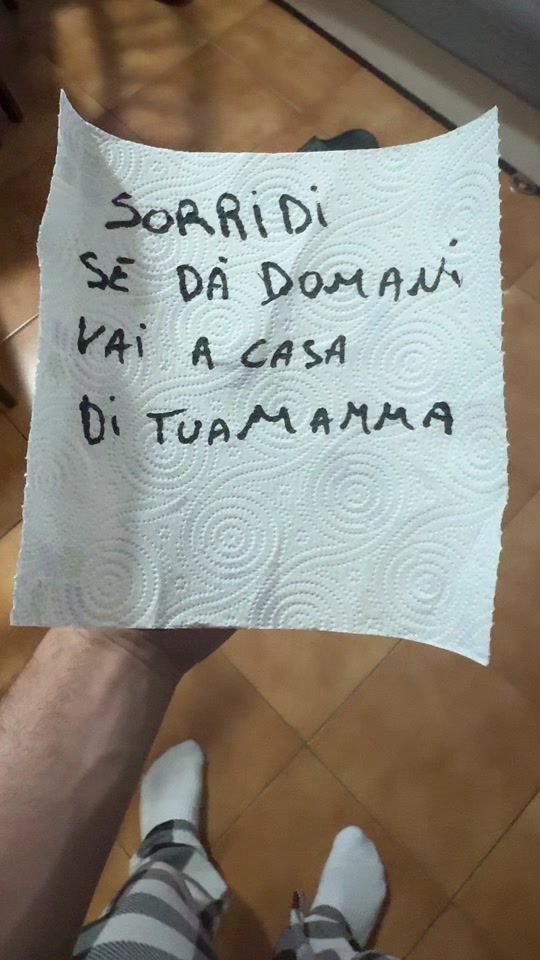 SORRiDi
SE DA DOMANi
VAi A CASA
Di TUA MAMMA